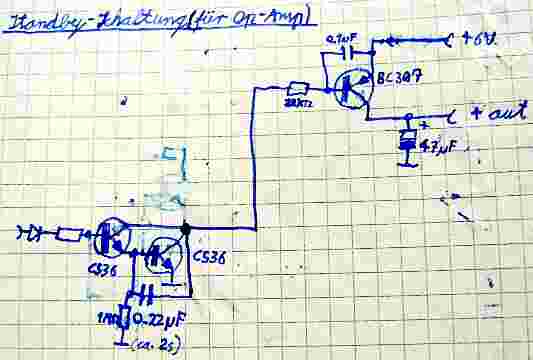 Standby-Schaltung (für Op-Amp)
0.1µF
+6V
BC307
+ out
+
47µF
CS36
CS36
1MΩ 0.22µF
(ca. 2s)